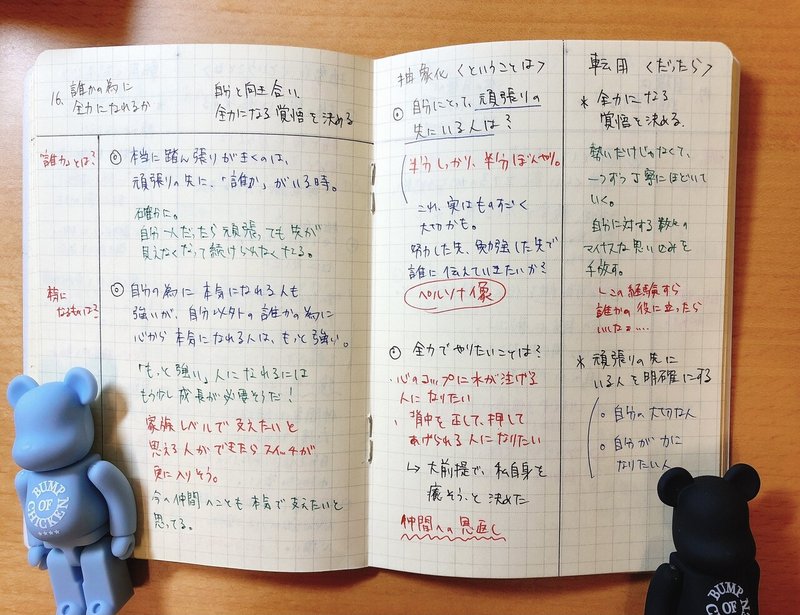 16. 誰かの為に
全力になれるか
自分と向き合い、
全力になる覚悟を決める
「誰か」とは?
◎ 本当に踏ん張りがきくのは、
頑張りの先に、「誰か」がいる時。
確かに。
自分一人だったら頑張っても先が
見えなくなって続けられなくなる。
糧に
なるものは?
◎ 自分の為に本気になれる人も
強いが、自分以外の誰かの為に
心から本気になれる人は、もっと強い。
「もっと強い」人になれるには
もう少し成長が必要そうだ!
家族レベルで支えたいと
思える人ができたらスイッチが
更に入りそう。
今は仲間へことも本気で支えたいと
思ってる。
抽象化〈ということは〉
◎ 自分にとって、頑張りの
先にいる人は?
半分しっかり、半分ぼんやり。
これ、実はものすごく
大切かも。
努力した先、勉強した先で
誰に伝えていきたいか?
ペルソナ像
◎ 全力でやりたいことは?
・心のコップに水が注げる
人になりたい
・背中を正して、押して
あげられる人になりたい
↳ 大前提で、私自身を
癒そう、と決めた
仲間への恩返し
転用〈だったら〉
* 全力になる
覚悟を決める。
勢いだけじゃなくて、
一つずつ丁寧にほどいて
いく。
自分に対する数々の
マイナスな思い込みを
手放す。
↳ この経験すら
誰かの役に立ったら
いいなぁ….
* 頑張りの先に
いる人を明確にする
○ 自分の大切な人
○ 自分が力に
なりたい人
BUMP
OF
CHICKEN
BUMP
OF